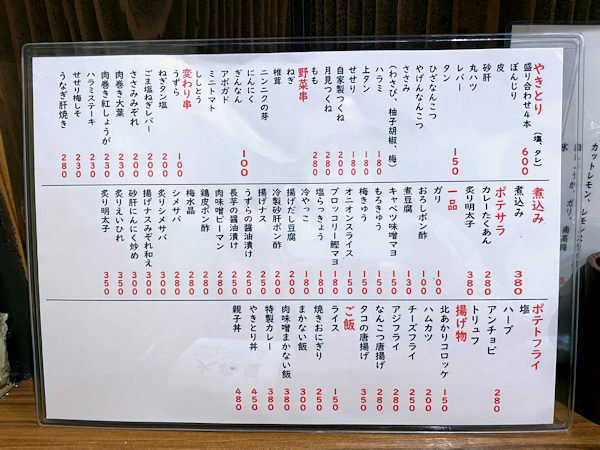 やきとり (塩、タレ)
盛り合わせ4本 600
ぼんじり
皮
砂肝
丸ハツ
レバー
タン 150
ひざなんこつ
やげんなんこつ
ささみ
(わさび、柚子胡椒、梅)
ハラミ 180
上タン 180
せせり 180
自家製つくね 180
月見つくね 280
もも 280
野菜串
ねぎ
椎茸
ニンニクの芽
にんにく
ぎんなん 100
アボガド
ミニトマト
ししとう
変わり串
うずら 100
ねぎタン塩 200
ごま塩ねぎレバー 200
ささみみぞれ 200
肉巻き大葉 230
肉巻き紅しょうが 230
ハラミステーキ 230
せせり梅しそ 230
うなぎ肝焼き 280
煮込み
煮込み 380
ポテサラ
カレーたくあん 280
炙り明太子 380
一品
ガリ 100
おろしポン酢 100
煮豆腐 130
キャベツ味噌マヨ 150
もろきゅう 150
梅きゅう 150
オニオンスライス 150
ブロッコリー鰹マヨ 180
塩らっきょう 180
冷やっこ 180
揚げだし豆腐 200
冷製砂肝ポン酢 200
揚げナス 200
うずらの醤油漬け 200
長芋の醤油漬け 250
肉味噌ピーマン 250
鶏皮ポン酢 280
梅水晶 280
シメサバ 280
炙りシメサバ 300
揚げナスみぞれ和え 300
砂肝にんにく炒め 350
炙りえいひれ 350
炙り明太子 350
ポテトフライ
塩
ハーブ
アンチョビ 280
トリュフ
揚げ物
北あかりコロッケ 150
ハムカツ 200
チーズフライ 250
アジフライ 280
なんこつ唐揚げ 250
タコの唐揚げ 350
ご飯
ライス 150
焼きおにぎり 250
まかない飯 300
肉味噌まかない飯 380
特製カレー 380
やきとり丼 450
親子丼 480
カットレモン、レモン
ガリ、南高梅